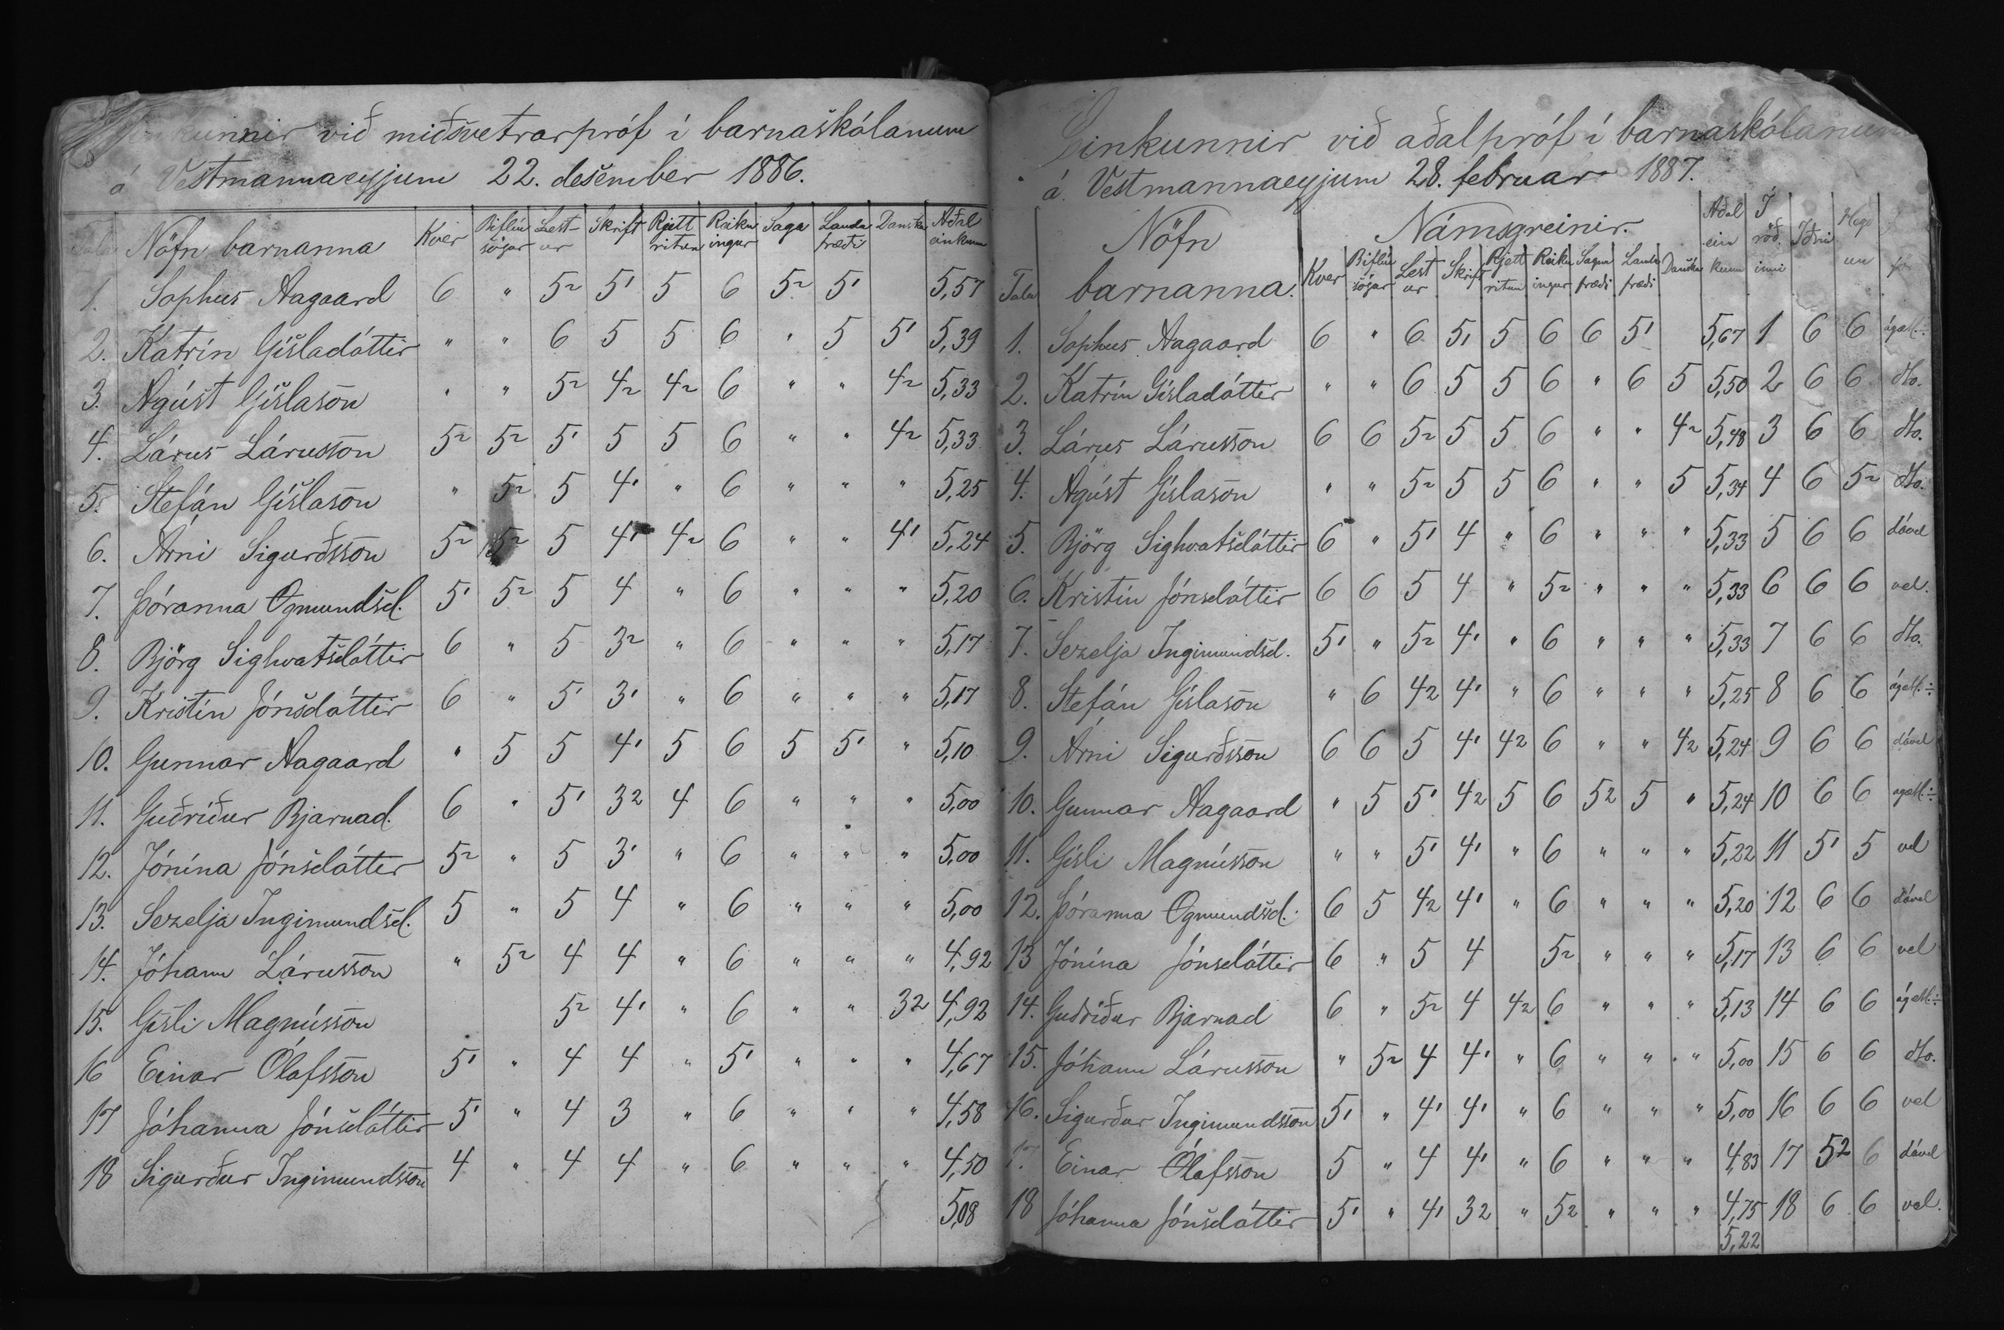 Einkunnir við miðsvetrarpróf í barnaskólanum
á Vestmannaeyjum 22. desember 1886.
Tala Nöfn barnanna Kver Biflíu sögur Lest- ur Skrift Rjett ritun Reikn ingur Saga Landa fræði Danska Aðal einkunn
1. Sophus Aagaard 6 " 52 51 5 6 52 51 5,57
2. Katrín Gísladóttir " " 6 5 5 6 " 5 51 5,39
3. Ágúst Gíslason " " 52 42 42 6 " " 42 5,33
4. Lárus Lárusson 52 52 51 5 5 6 " " 42 5,33
5. Stefán Gíslason " 52 5 41 " 6 " " " 5,25
6. Árni Sigurðsson 52 52 5 41 42 6 " " 41 5,24
7. Þóranna Ögmundsd. 51 52 5 4 " 6 " " " 5,20
8. Björg Sighvatsdóttir 6 " 5 32 " 6 " " " 5,17
9. Kristín Jónsdóttir 6 " 51 31 " 6 " " " 5,17
10. Gunnar Aagaard " 5 5 41 5 6 5 51 " 5,10
11. Guðríður Bjarnad. 6 " 51 32 4 6 " " " 5,00
12. Jónína Jónsdóttir 52 " 5 31 " 6 " " " 5,00
13. Sezelja Ingimundsd. 5 " 5 4 " 6 " " " 5,00
14. Jóhann Lárusson " 52 4 4 " 6 " " " 4,92
15. Gísli Magnússon 52 41 " 6 " " 32 4,92
16 Einar Ólafsson 51 " 4 4 " 51 " " " 4,67
17 Jóhanna Jónsdóttir 51 " 4 3 " 6 " " " 4,58
18 Sigurður Ingimundsson 4 " 4 4 " 6 " " " 4,50
5,08
Einkunnir við aðalpróf í barnaskólanum
á Vestmannaeyjum 28. februar 1887.
Nöfn Námsgreinir. Aðal ein kunn Í röð inni Iðni
Tala barnanna. Kver Biflíu sögur Lest ur Skrift Rjett ritun Reikn ingur Sagna fræði Landa fræði Danska
1. Sophus Aagaard 6 " 6 51 5 6 6 51 5,67 1 6 6 ágætl.÷
2. Katrín Gísladóttir " " 6 5 5 6 " 6 5 5,50 2 6 6 dto.
3. Lárus Lárusson 6 6 52 5 5 6 " " 42 5,48 3 6 6 dto.
4. Ágúst Gíslason " " 52 5 5 6 " " 5 5,34 4 6 52 dto.
5. Björg Sighvatsdóttir 6 " 51 4 " 6 " " " 5,33 5 6 6 dável
6. Kristín Jónsdóttir 6 6 5 4 " 52 " " " 5,33 6 6 6 vel.
7. Sezelja Ingimundsd. 51 " 52 41 " 6 " " " 5,33 7 6 6 dto.
8. Stefán Gíslason " 6 42 41 " 6 " " " 5,25 8 6 6 ágætl.÷
9. Árni Sigurðsson 6 6 5 41 42 6 " " 42 5,24 9 6 6 dável
10. Gunnar Aagaard " 5 51 42 5 6 52 5 " 5,24 10 6 6 ágætl.÷
11. Gísli Magnússon " " 51 41 " 6 " " " 5,22 11 51 5 vel
12. Þóranna Ögmundsd. 6 5 42 41 " 6 " " " 5,20 12 6 6 dável
13 Jónína Jónsdóttir 6 " 5 4 52 " " " 5,17 13 6 6 vel
14. Guðríður Bjarnad 6 " 52 4 42 6 " " " 5,13 14 6 6 ágætl.÷
15. Jóhann Lárusson " 52 4 41 " 6 " " " 5,00 15 6 6 dto.
16. Sigurður Ingimundsson 51 " 41 41 " 6 " " " 5,00 16 6 6 vel
17. Einar Ólafsson 5 " 4 41 " 6 " " " 4,83 17 52 6 dável
18 Jóhanna Jónsdóttir 51 " 41 32 " 52 " " " 4,75 18 6 6 vel.
5,22